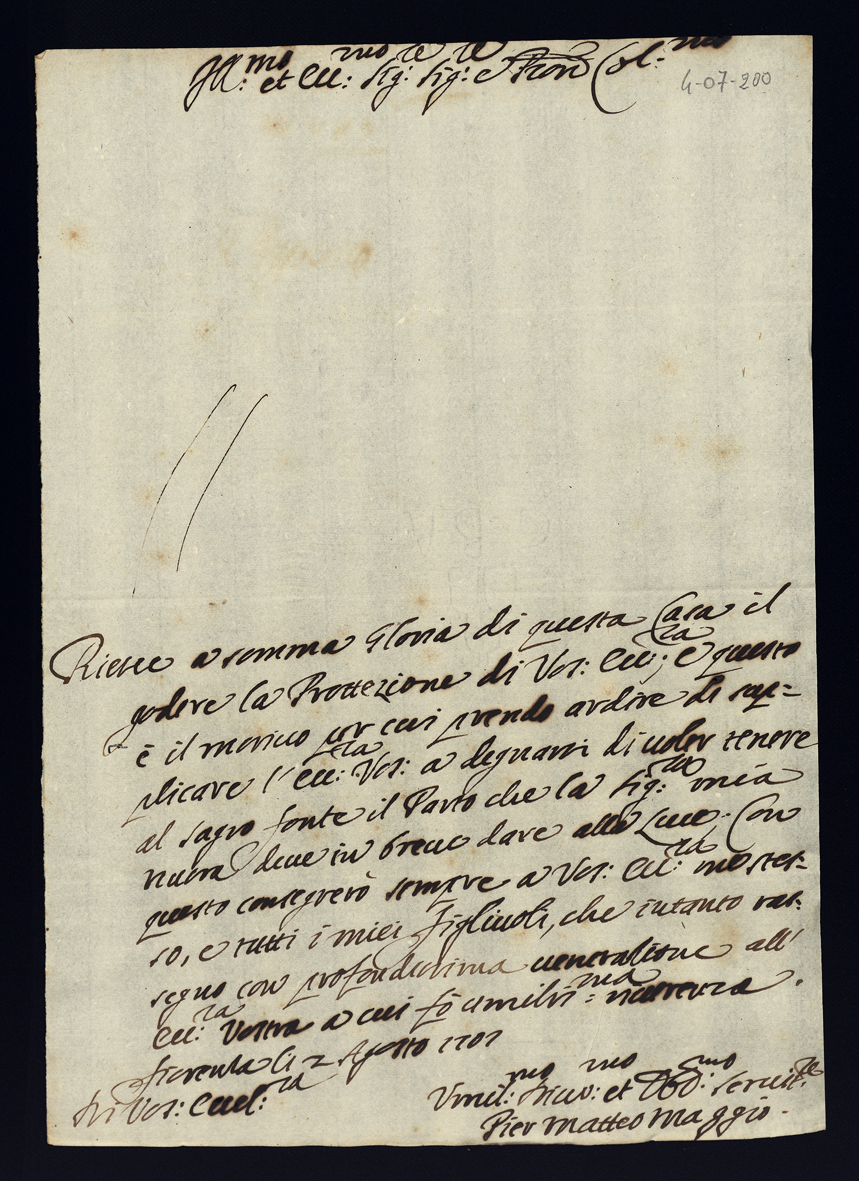 Ill:mo et Ecc:mo Sig:re Sig:re e Pron Col:mo
4-07-200
Riesce a somma Gloria di questa Casa il
godere la Prottezione di Vos: Ecc:za; e questo
è il motivo per cui prendo ardire di sup=
plicare l'Ecc:za Vos: a degnarsi di voler tenere
al sagro fonte il Parto che la Sig:ra mia
nuora deve in breve dare alla Luce. Con
questo consegrerò sempre a Vos: Ecc:za me stes=
so, e tutti i miei figliuoli, che intanto ras=
segno con profondissima veneratione all'
Ecc:za Vostra a cui fò umilis=ma riverenza.
li 2 Agosto 1707
Di Vos: Eccel:za
Umil:mo et Obb:mo Servit:re
Pier Matteo Maggio.